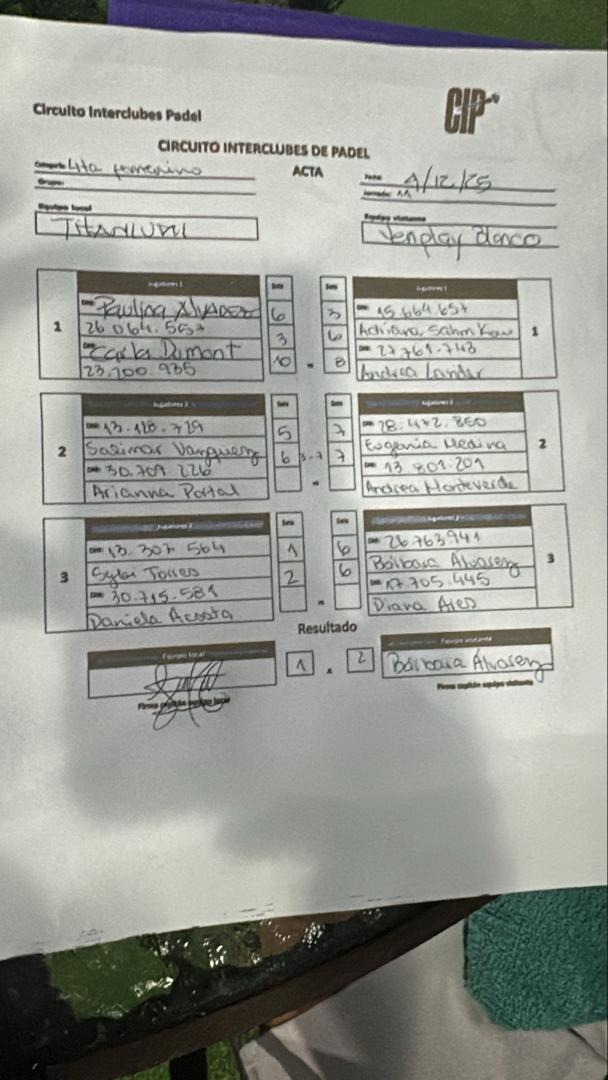 Circuito Interclubes Padel
CIP
CIRCUITO INTERCLUBES DE PADEL
Categoria: 4ta femenino
ACTA
Fecha: 9/12/25
Grupo:
Jornada: 11
Equipo local
Equipo visitante
TITANIUM
Venplay Blanco
Jugadores 1 Sets Sets Jugadores 1
1
Paulina Alvarez 6 3 15.664.657
26.064.557 3 6 Adriana Sahm Kow
Carla Dimont 27.761.743
23.200.935 10 - 8 Andrea Lander
1
Jugadores 2 Sets Sets Jugadores 2
2
13.128.729 5 7 28.472.850
Sasimar Vanguenz 6 3-7 7 Eugenia Medina
30.709.226 13.801.201
Arianna Portal - Andrea Monteverde
2
Jugadores 3 Sets Sets Jugadores 3
3
13.307.564 1 6 26.763941
Sylvi Torres 2 6 Bárbara Álvarenz
30.715.581 17.705.445
Daniela Acosta - Diana Ares
3
Resultado
Equipo local Equipo visitante
1 - 2 Bárbara Álvarenz
Firma capitán equipo local
Firma capitán equipo visitante